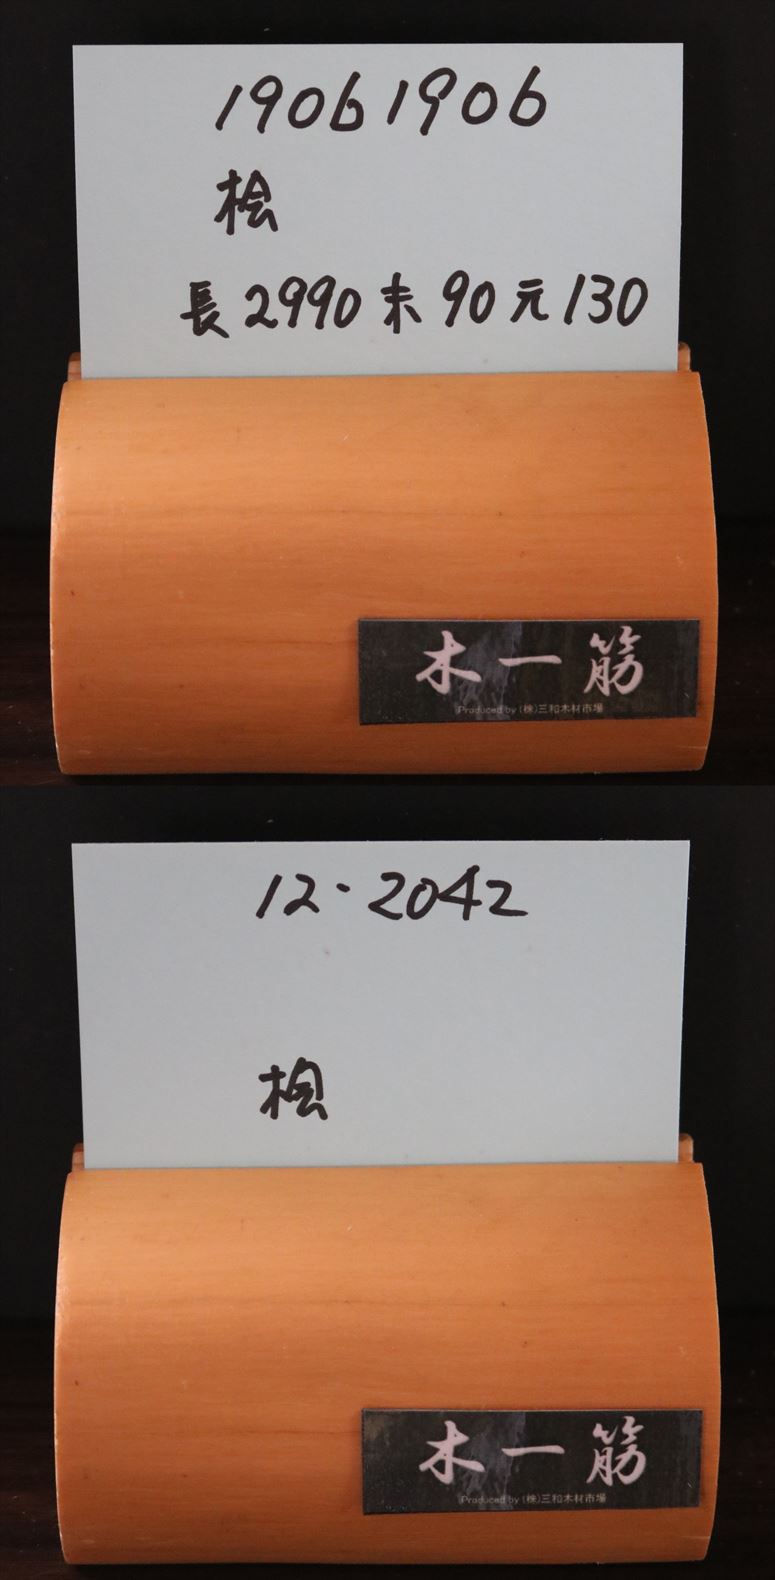 19061906
桧
長2990 末90 元130
木一筋
Produced by (株)三和木材市場
12・2042
桧
木一筋
Produced by (株)三和木材市場